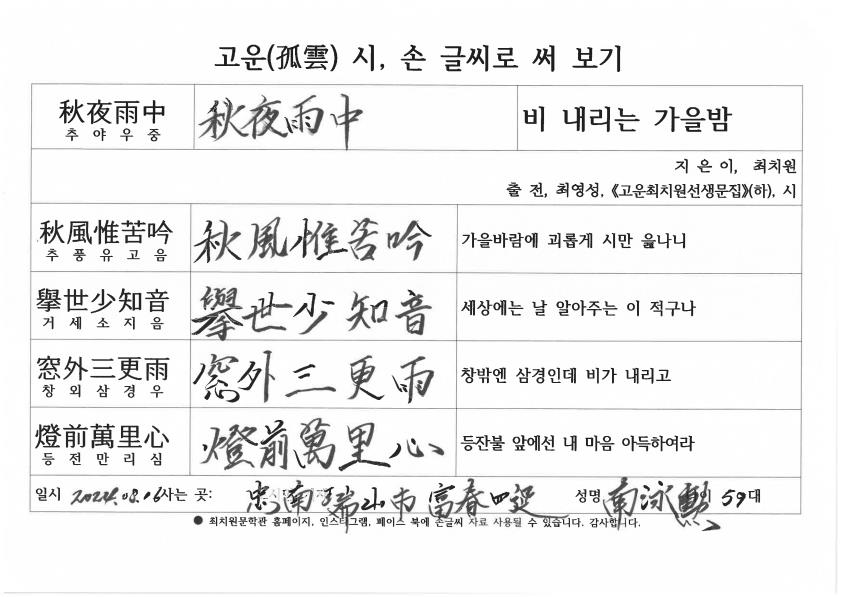 고운(孤雲) 시, 손 글씨로 써 보기
秋夜雨中 秋夜雨中 비 내리는 가을밤
추 야 우 중
지 은 이, 최치원
출 전, 최영성, 《고운최치원선생문집》(하), 시
秋風惟苦吟 秋風惟苦吟 가을바람에 괴롭게 시만 읊나니
추 풍 유 고 음
擧世少知音 擧世少知音 세상에는 날 알아주는 이 적구나
거 세 소 지 음
窓外三更雨 窓外三更雨 창밖엔 삼경인데 비가 내리고
창 외 삼 경 우
燈前萬里心 燈前萬里心 등잔불 앞에선 내 마음 아득하여라
등 전 만 리 심
일시 2024.08.16 사는 곳: 忠南 瑞山市 富春四 성명 南泳 59대
● 최치원문학관 홈페이지, 인스타그램, 페이스 북에 손글씨 자료 사용될 수 있습니다. 감사합니다.